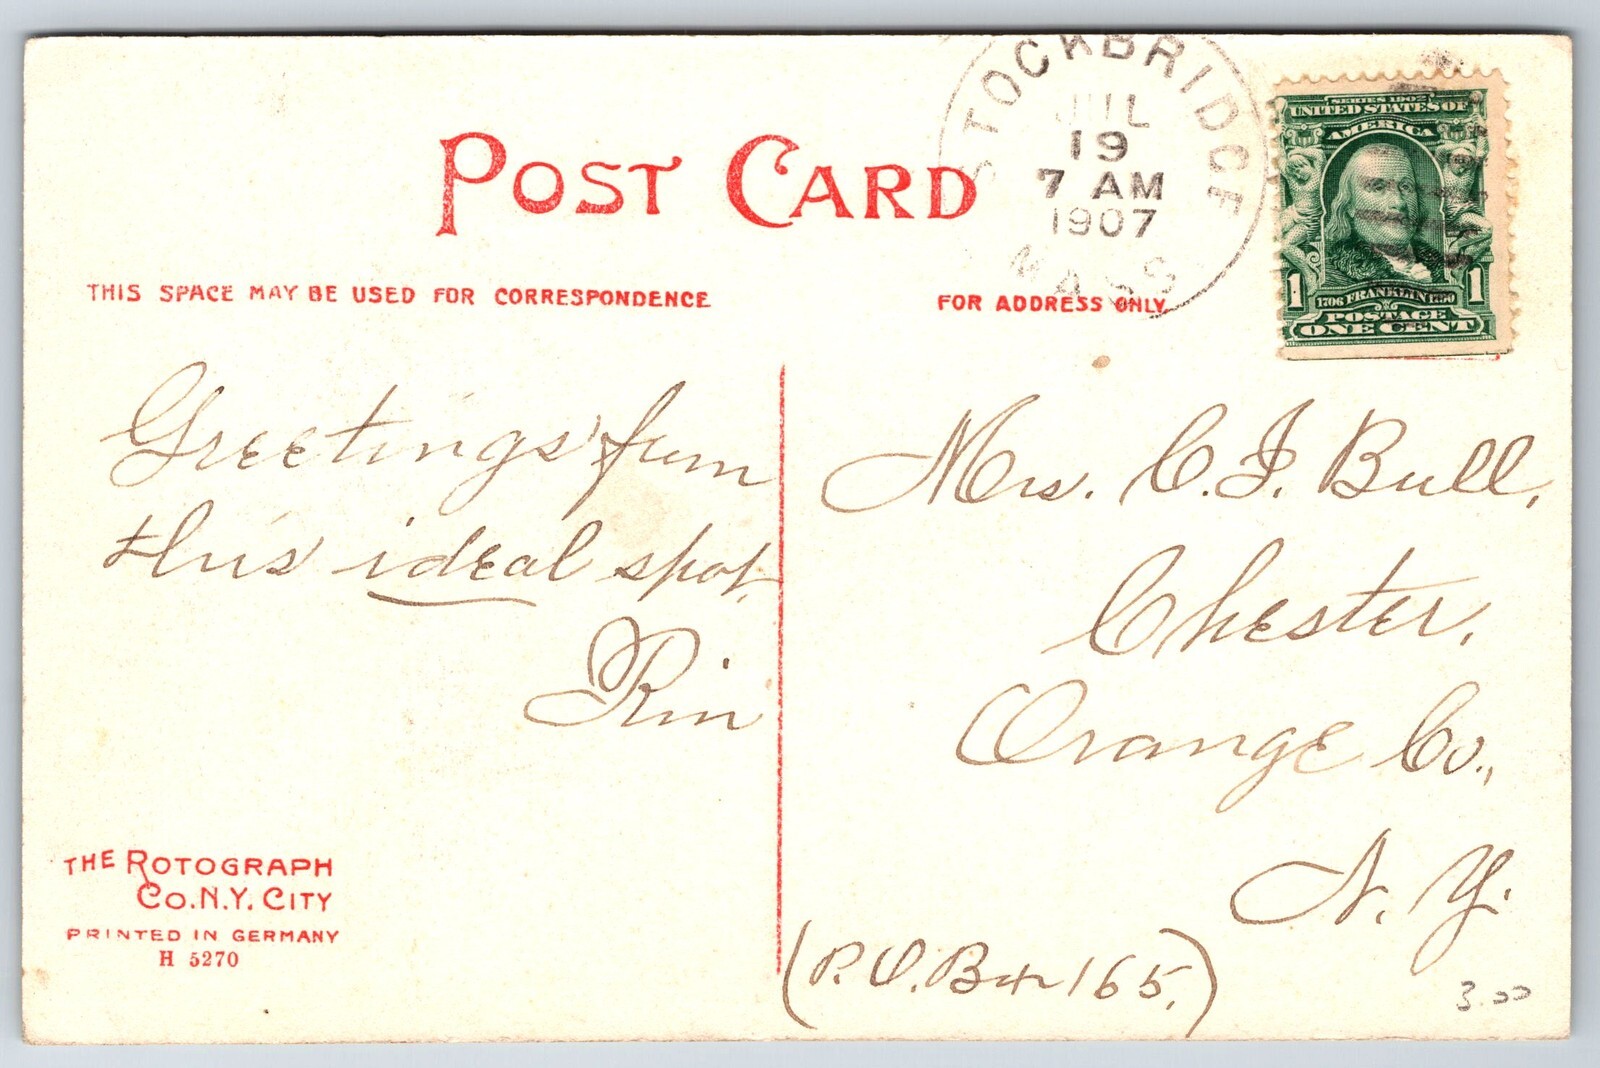 POST CARD
THIS SPACE MAY BE USED FOR CORRESPONDENCE
FOR ADDRESS ONLY
STOCKBRIDGE
JUL
19
7 AM
1907
MASS
SERIES 1902
UNITED STATES OF
AMERICA
1 1706 FRANKLIN 1790 1
POSTAGE
ONE CENT
Greetings from
this ideal spot,
Rin
Mrs. C. F. Bull,
Chester,
Orange Co.,
N. Y.
(P. O. Box 165.)
THE ROTOGRAPH
CO. N.Y. CITY
PRINTED IN GERMANY
H 5270
3.00